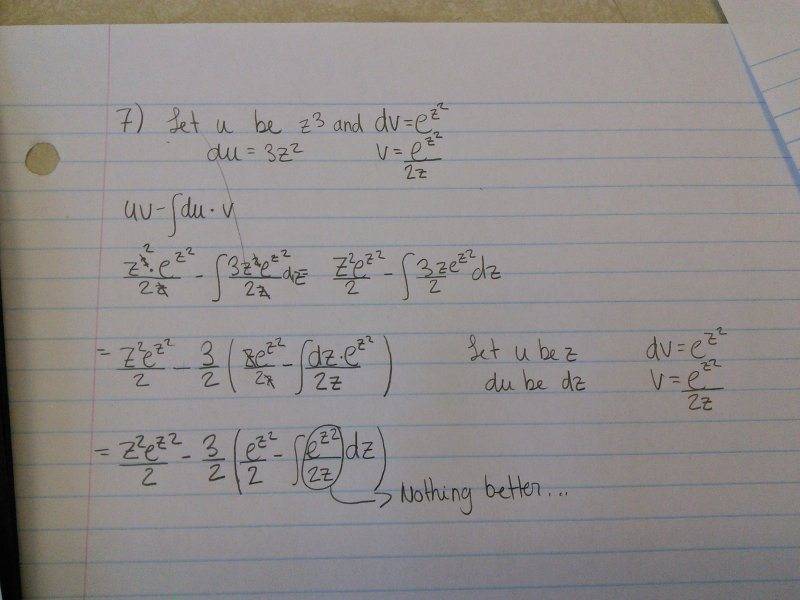 7) Let u be z³ and dv = e^z²
du = 3z² v = e^z²/2z
uv - ∫du · v
z³² · e^z²/2z - ∫3z²e^z²/2z dz = z²e^z²/2 - ∫3ze^z²/2 dz
= z²e^z²/2 - 3/2 (ze^z²/2z - ∫dz · e^z²/2z) Let u be z dv = e^z²
du be dz v = e^z²/2z
= z²e^z²/2 - 3/2 (e^z²/2 - ∫e^z²/2z dz)
Nothing better...